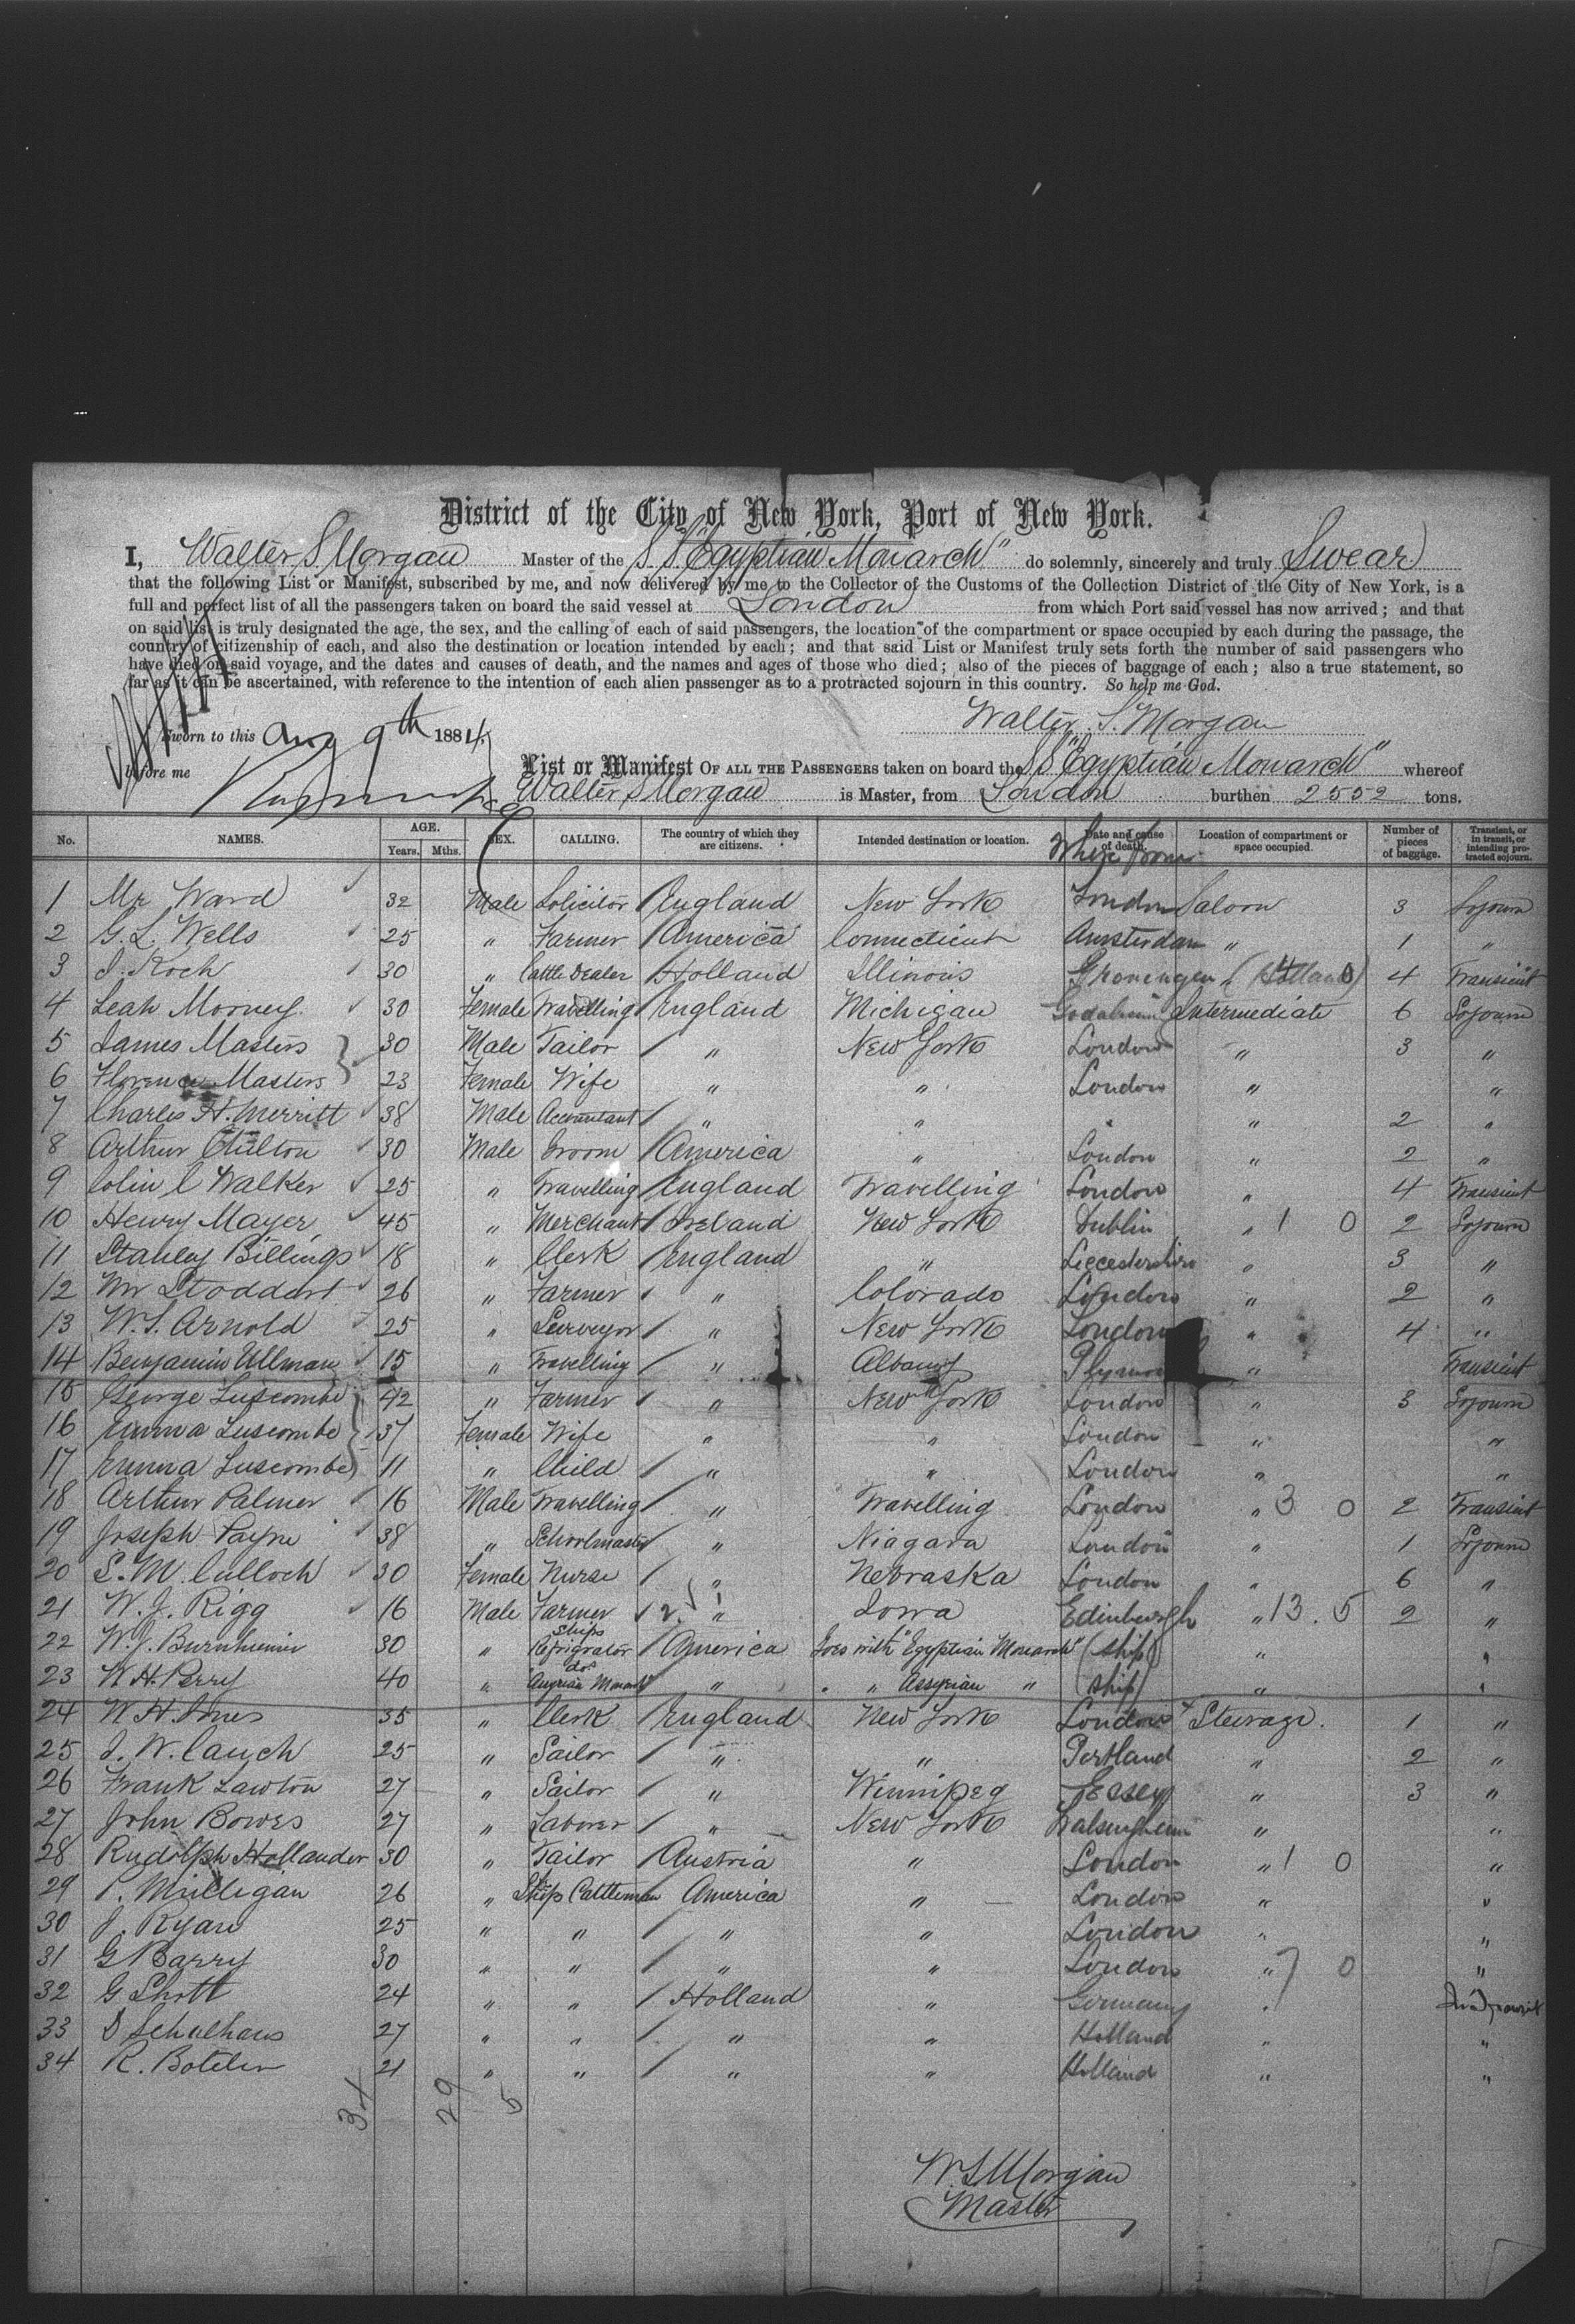 District of the City of New York, Port of New York.
I, Walter S Morgan Master of the S.S. "Egyptian Monarch" do solemnly, sincerely and truly Swear
that the following List or Manifest, subscribed by me, and now delivered by me to the Collector of the Customs of the Collection District of the City of New York, is a
full and perfect list of all the passengers taken on board the said vessel at London from which Port said vessel has now arrived; and that
on said list is truly designated the age, the sex, and the calling of each of said passengers, the location of the compartment or space occupied by each during the passage, the
country of citizenship of each, and also the destination or location intended by each; and that said List or Manifest truly sets forth the number of said passengers who
have died on said voyage, and the dates and causes of death, and the names and ages of those who died; also of the pieces of baggage of each; also a true statement, so
far as it can be ascertained, with reference to the intention of each alien passenger as to a protracted sojourn in this country. So help me God.
Walter S. Morgan
Sworn to this Aug 9th 1884,
before me
List or Manifest OF ALL THE PASSENGERS taken on board the SS "Egyptian Monarch" whereof
Walter S Morgan is Master, from London burthen 2552 tons.
No. NAMES. AGE. Years. Mths. SEX. CALLING. The country of which they are citizens. Intended destination or location. Date and cause of death. Where from Location of compartment or space occupied. Number of pieces of baggage. Transient, or in transit, or intending protracted sojourn.
1 Mr Ward 32 Male Solicitor England New York London Saloon 3 Sojourn
2 G. L. Wells 25 " Farmer America Connecticut Amsterdam " 1 "
3 J. Koch 30 " Cattle Dealer Holland Illinois Groningen (Holland) 4 Transient
4 Leah Morney 30 Female Travelling England Michigan Intermediate 6 Sojourn
5 James Masters 30 Male Tailor " New York London " 3 "
6 Florence Masters 23 Female Wife " " London " "
7 Charles H. Merritt 38 Male Accountant " " " " 2 "
8 Arthur Chilton 30 Male Groom America " London " 2 "
9 Colin C Walker 25 " Travelling England Travelling London " 4 Transient
10 Henry Mayer 45 " Merchant Ireland New York Dublin " 1 0 2 Sojourn
11 Stanley Billings 18 " Clerk England " Leicestershire " 3 "
12 Mr Stoddart 26 " Farmer " Colorado London " 2 "
13 W. S. Arnold 25 " Surveyor " New York London " 4 "
14 Benjamin Ullman 15 " Travelling " Albany " Transient
15 George Luscombe 42 " Farmer " New York London " 3 Sojourn
16 Emma Luscombe 37 Female Wife " " London " "
17 Emma Luscombe 11 " Child " " London " "
18 Arthur Palmer 16 Male Travelling " Travelling London " 3 0 2 Transient
19 Joseph Payne 38 " Schoolmaster " Niagara London " 1 Sojourn
20 S. McCulloch 30 Female Nurse " Nebraska London " 6 "
21 W. J. Rigg 16 Male Farmer " Iowa Edinburgh " 13.5 2 "
22 W. J. Burnheimer 30 " Ships Refrigrator America Goes with "Egyptian Monarch" (ship) " "
23 W. H. Perry 40 " do. Assyrian Monarch " " " Assyrian " (ship) " "
24 W. H. Innes 35 " Clerk England New York London Steerage. 1 "
25 J. W. Cauch 25 " Sailor " " Portland " 2 "
26 Frank Lawton 27 " Sailor " Winnipeg Jersey " 3 "
27 John Bowes 27 " Laborer " New York " "
28 Rudolph Hollander 30 " Tailor Austria " London " 1 0 "
29 P. Milligan 26 " Ship Cattleman America " London " "
30 J. Ryan 25 " " " " London " "
31 G Barry 30 " " " " London " 7 0 "
32 G Shott 24 " " Holland " Germany " In transit
33 S Schulhaus 27 " " " " Holland " "
34 R. Botelin 21 " " " " Holland " "
34 29 5
W. S Morgan
Master